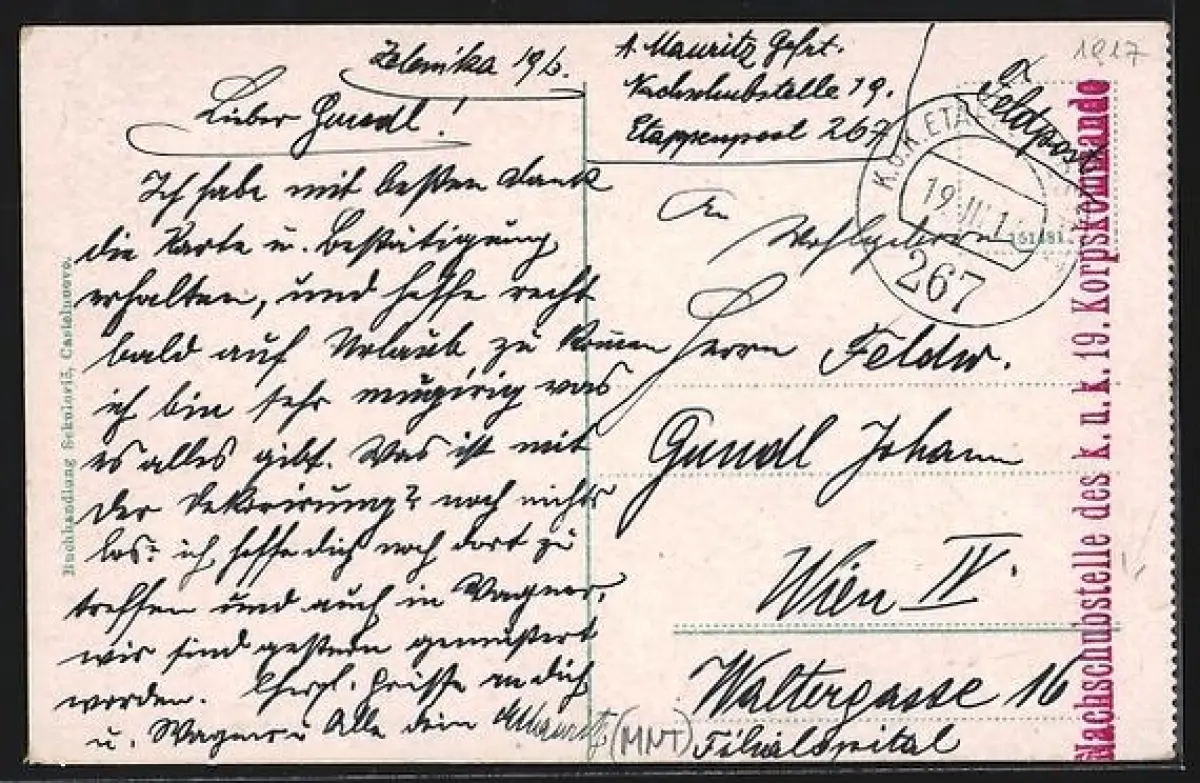 Zelenika 19/6.
Lieber Gundl!
Ich habe mit besten Dank
die Karte u. Bestätigung
erhalten, und hoffe recht
bald auf Urlaub zu kommen
ich bin sehr neugirig was
es alles gibt. Was ist mit
der Dekorirung? noch nichts
los? ich hoffe dich noch dort zu
treffen und auch in Wagner,
wir sind gestern gemustert
worden. Herzl. Grüsse an dich
u. Wagner u Alle dein Mauritz
(MNT)
A. Mauritz Gefrt.
Nachschubstelle 19.
Etappenpost 267
1917
Feldpost
K.U.K. ETA
19. VI. 1
267
151681
An
Wohlgeboren
Herrn Feldw.
Gundl Johann
Wien IV.
Waltergasse 16
Filialspital
Nachschubstelle des k. u. k. 19. Korpskomando
Buchhandlung Sekulović, Castelnuovo.